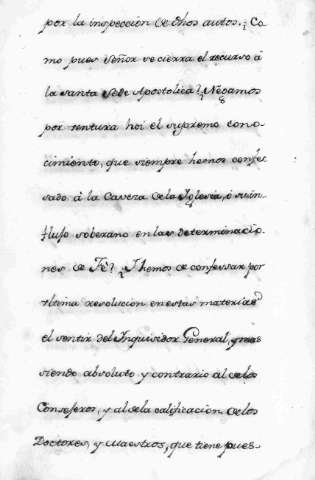 por la inspeccion de dhos autos. ¿Co
mo pues Señor se cierra el recurso á
la santa Sede Apostolica? ¿Negamos
por ventura hoi el supremo cono
cimiento, que siempre hemos confes
sado á la Caveza dela Iglesia, ó su in
flujo soberano en las determinacio
nes de Fé? ¿Hemos de confessar por
ultima resolucion en estas materias
el sentir del Inquisidor General, y mas
siendo absoluto y contrario al delos
Consejeros, y al dela calificacion delos
Doctores, y Maestros, que tiene pues